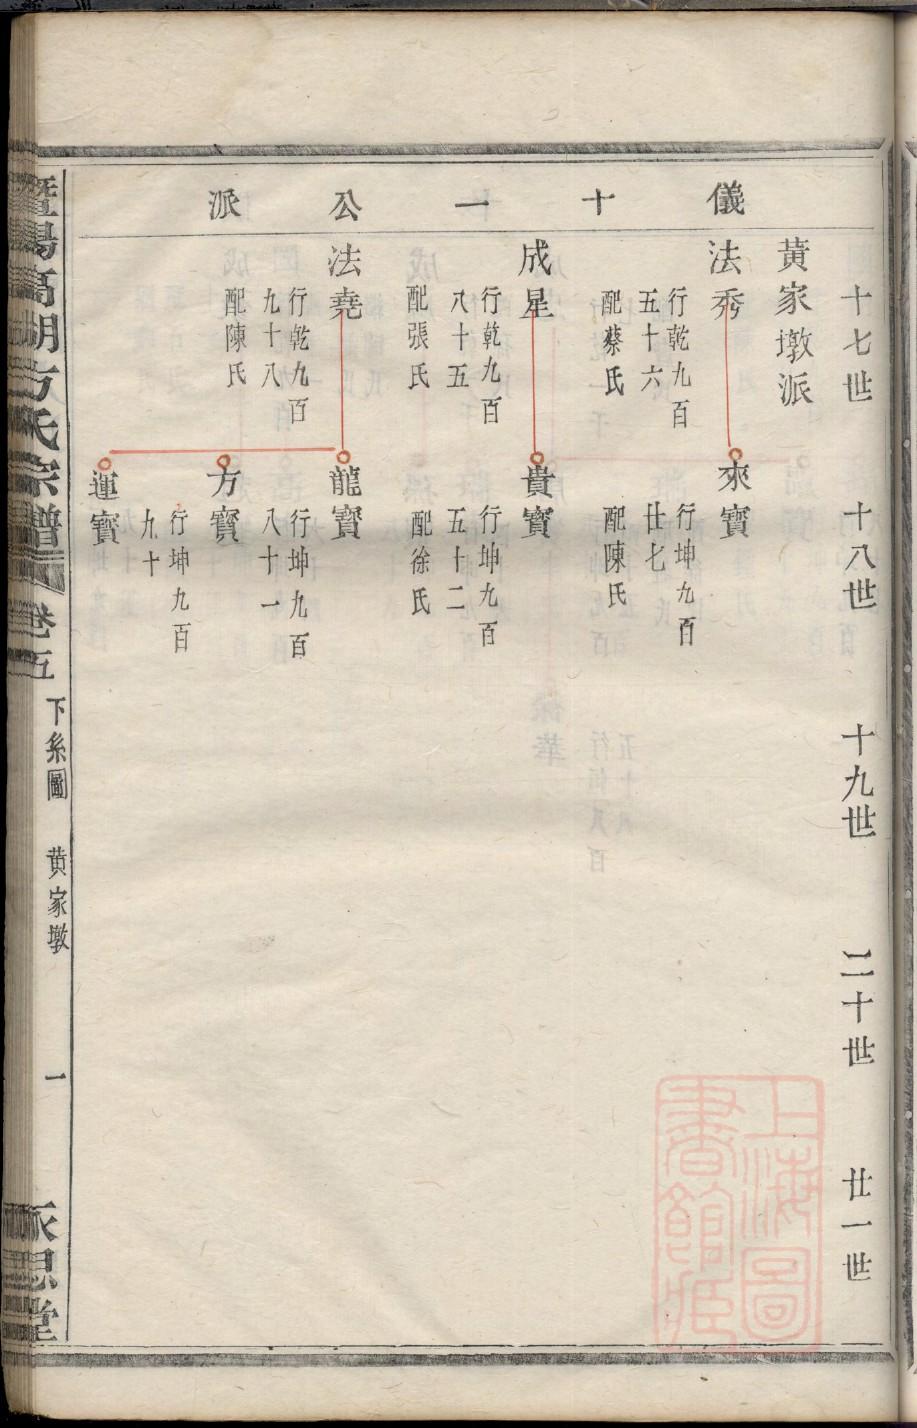 儀十一公派
十七世
十八世
十九世
二十世
廿一世
黃家墩派
法秀
行乾九百
五十六
配蔡氏
來寶
行坤九百
廿七
配陳氏
成星
行乾九百
八十五
配張氏
貴寶
行坤九百
五十二
配徐氏
法堯
行乾九百
九十八
配陳氏
龍寶
行坤九百
八十一
方寶
行坤九百
九十
運寶
暨陽高湖方氏宗譜
卷五
下系圖
黃家墩
一
永思堂
上海圖
書館藏